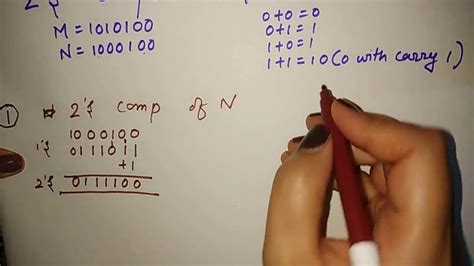 M = 1010100
N = 1000100
0+0=0
0+1=1
1+0=1
1+1=10(0 with carry 1)
1 2's comp of N
1000100
1's 0111011
+1
2's 0111100